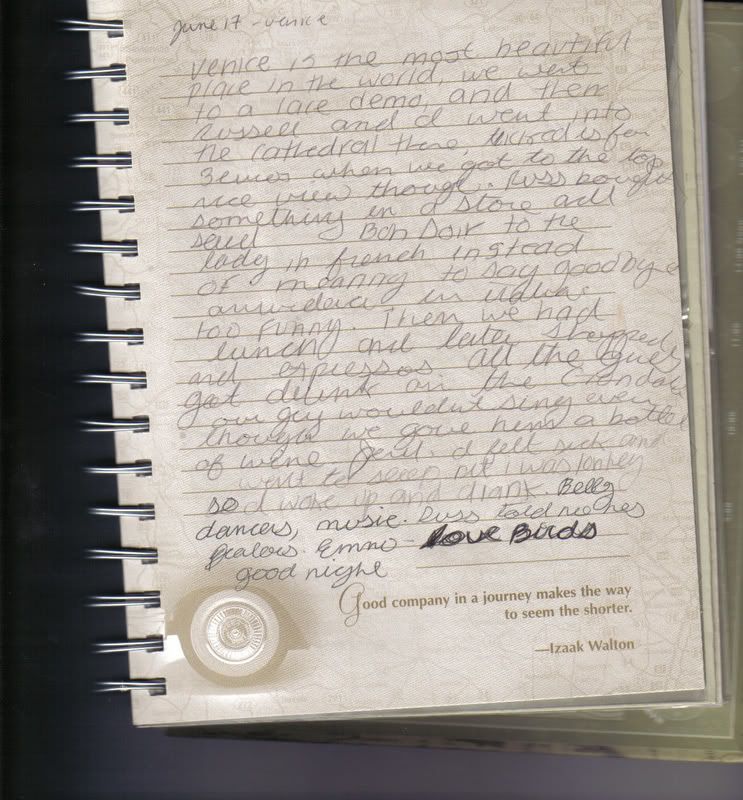 June 17 - Venice
Venice is the most beautiful
place in the world, we went
to a lace demo, and then
Russell and I went into
the cathedral there, closed is for
when we got to the top
nice view though. Russ bought
something in a store and
said Bon Soir to the
lady in french instead
of meaning to say goodbye
in
too funny. Then we had
lunch and later shopped
and espressos. All the guys
got drunk on the
our guy wouldn't sing even
though we gave him a bottle
of wine I felt sick and
went to sleep but I was
so I woke up and drank. Belly
dancers, music. Russ told me hes
Jealous. Emmo - love Birds
good night
Good company in a journey makes the way
to seem the shorter.
—Izaak Walton